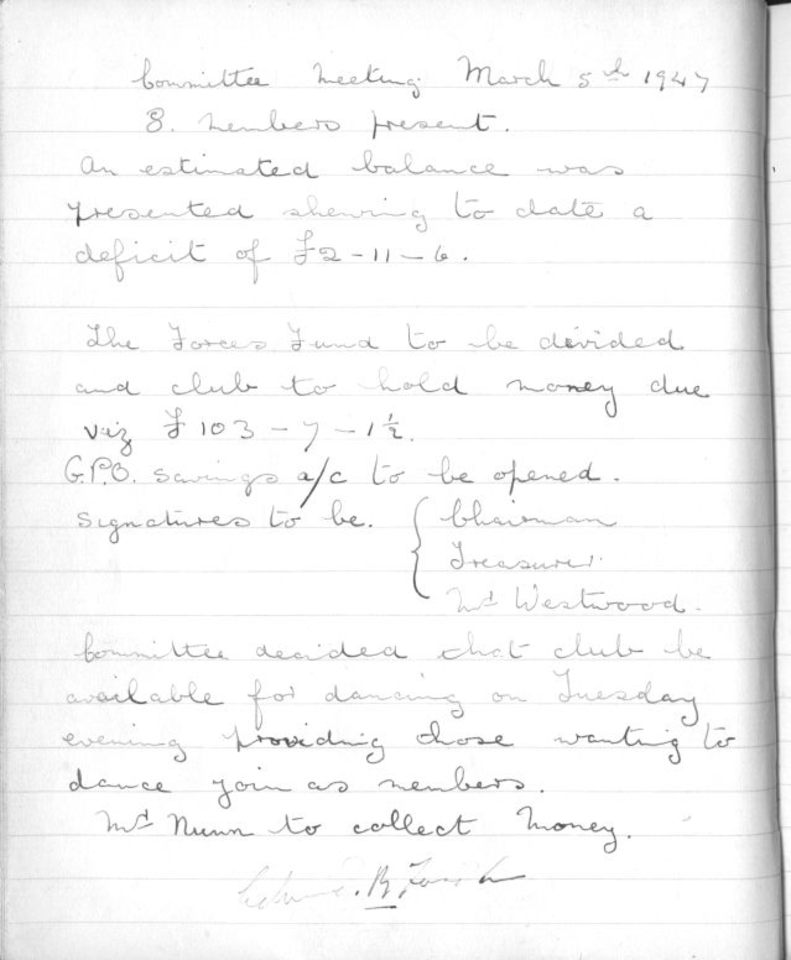 Committee Meeting March 5th 1947
8. Members present.
An estimated balance was
presented shewing to date a
deficit of £2-11-6.
The Forces Fund to be divided
and club to hold money due
viz £103-7-1½.
G.P.O. Savings a/c to be opened.
Signatures to be. { Chairman
Treasurer.
Mrs Westwood.
Committee decided that club be
available for dancing on Tuesday
evening providing those wanting to
dance join as members.
Mrs Nunn to collect money.
B